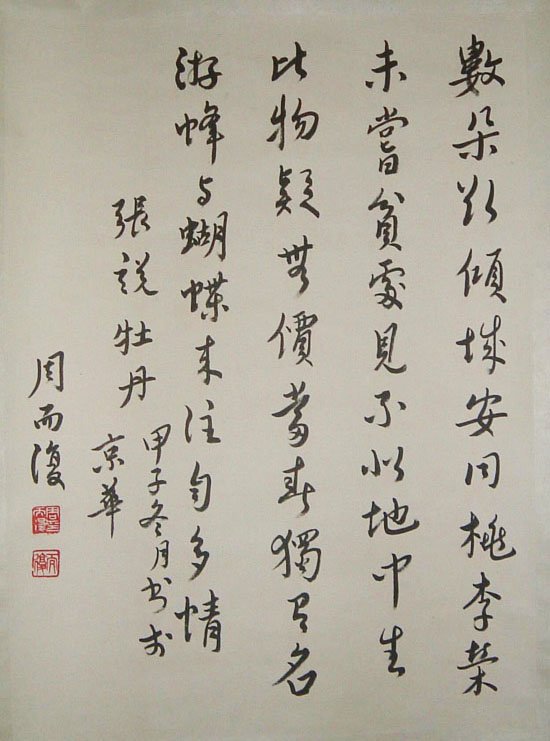 數朵欲傾城安同桃李榮
未嘗貧處見不似地中生
此物疑無價當春獨有名
游蜂与蝴蝶来往自多情
張說牡丹
甲子冬月書於
京華
周而復